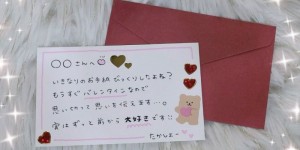 ○○さんへ
いきなりのお手紙びっくりしたよね？
もうすぐバレンタインなので
思い切って思いを伝えます…。
実はずっと前から大好きです!!
たかしより